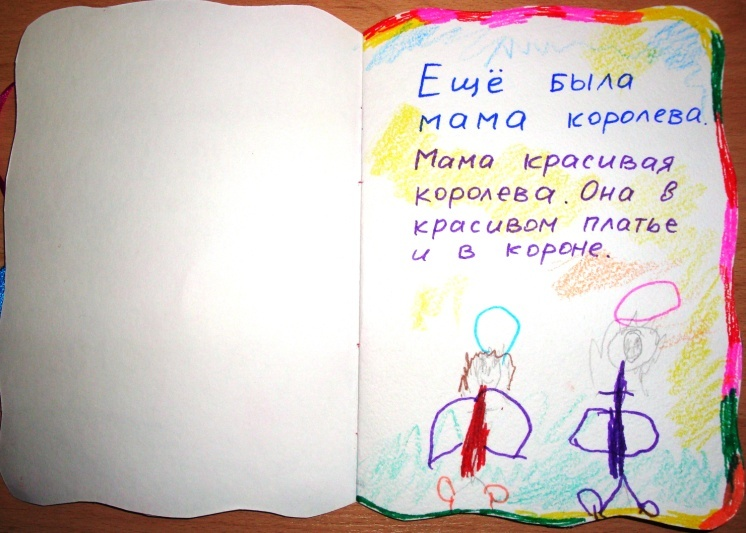 Ещё была
мама королева.
Мама красивая
королева. Она в
красивом платье
и в короне.